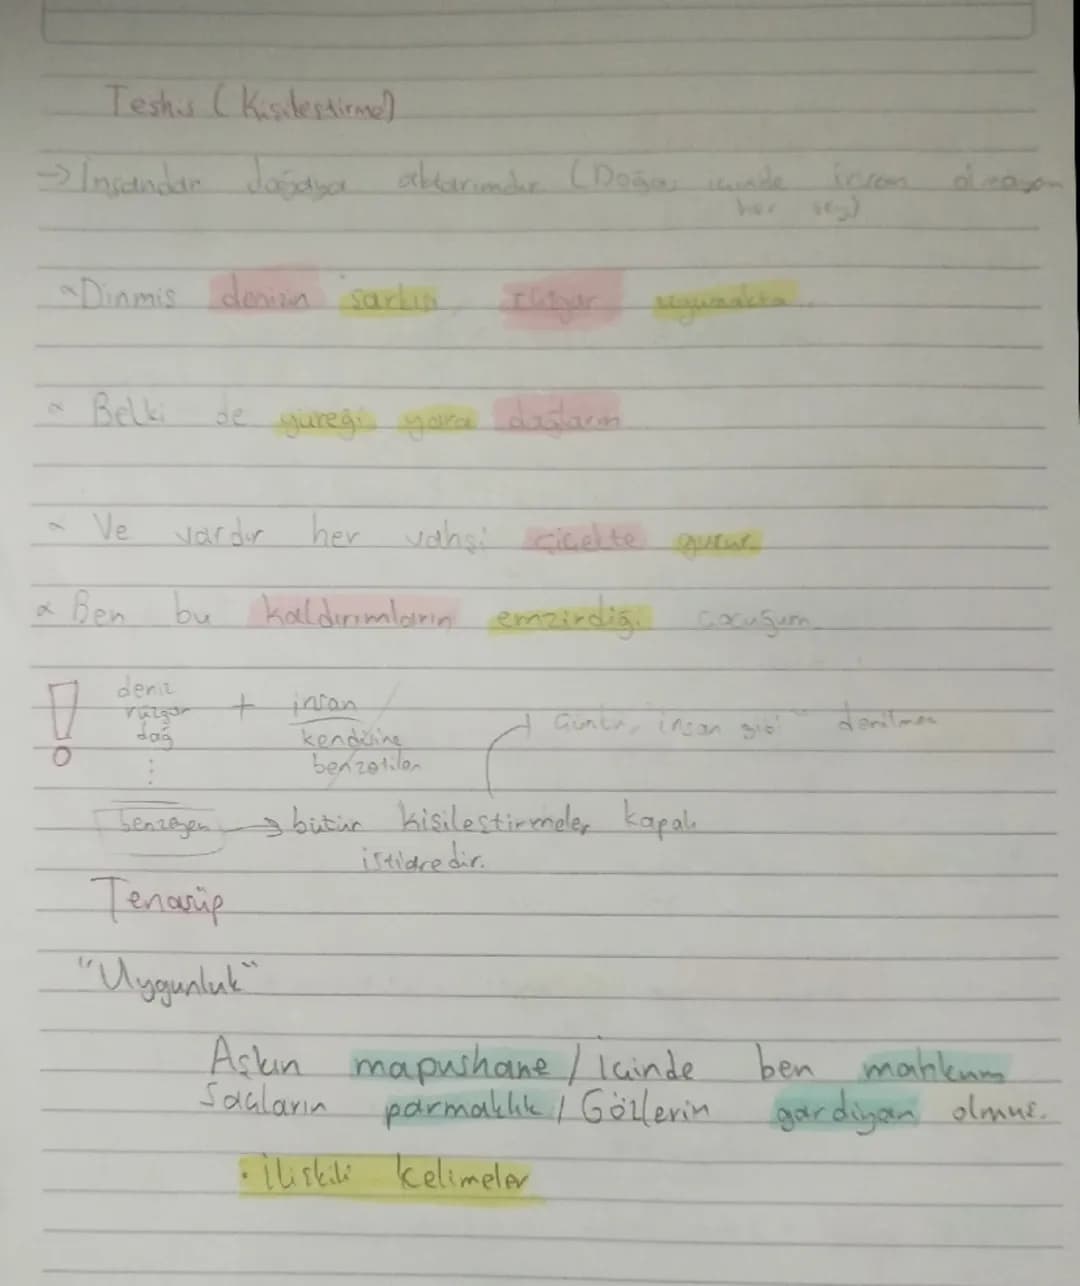 Teshis (Kişileştirme)
→ İnsandan doğaya aktarımdır (Doğa içinde insan olmayan
her şey)
Dinmiş denizin şarkısı, rüzgar uyumakta..
Belki de yüreği yara dağların
Ve vardır her vahşi çiçekte gurur
Ben bu kaldırımların emzirdiği çocuğum
! deniz
rüzgar + insan
dağ kendisine
⋮ benzetilen
Çünkü, "insan gibi" denilmez
benzeyen → bütün kişileştirmeler kapalı
istiaredir.
Tenasüp
"Uygunluk"
Aşkın mapushane / İçinde ben mahkum
Saçların parmaklık / Gözlerin gardiyan olmuş.
• İlişkili kelimeler